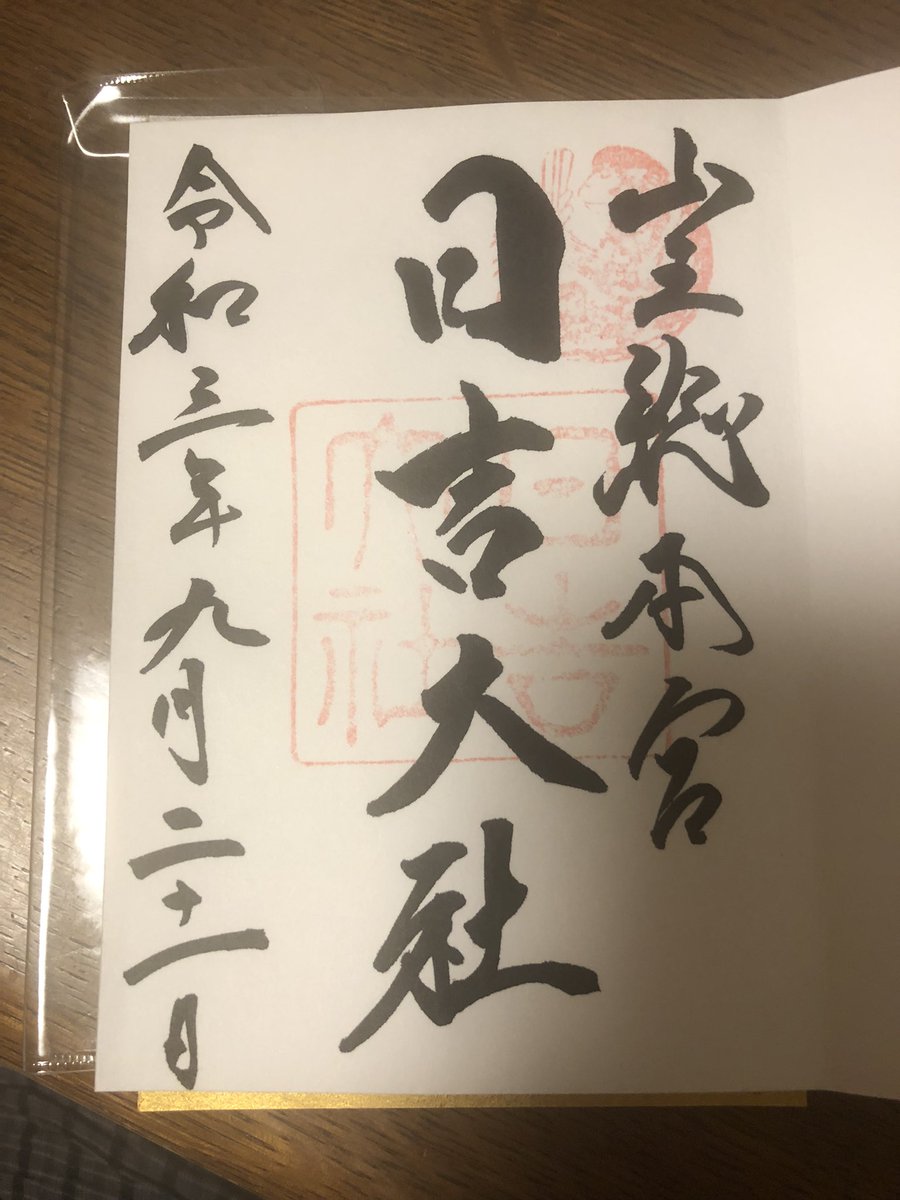 山王総本宮
日吉大社
令和三年九月二十一日
日吉大社